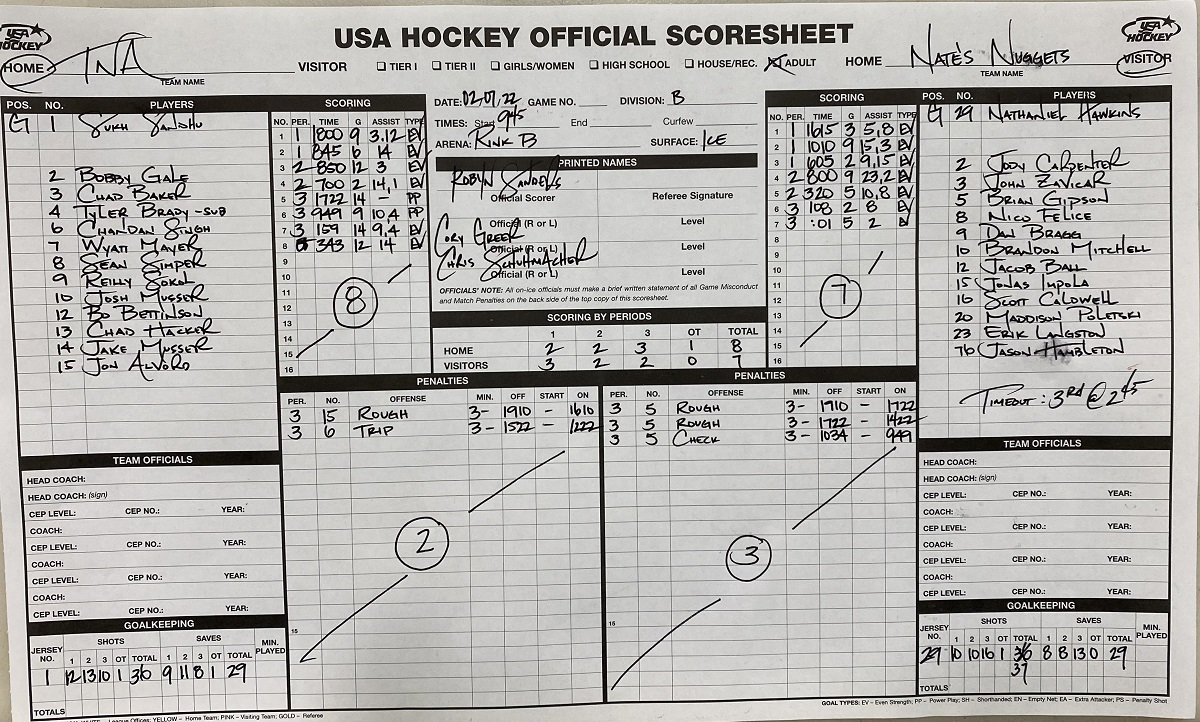 USA HOCKEY
USA HOCKEY OFFICIAL SCORESHEET
USA HOCKEY
HOME TNA VISITOR ☐ TIER I ☐ TIER II ☐ GIRLS/WOMEN ☐ HIGH SCHOOL ☐ HOUSE/REC. ☒ ADULT HOME NATE'S NUGGETS VISITOR
TEAM NAME
TEAM NAME
POS. NO. PLAYERS
G 1 SUKH SANDHU
2 BOBBY GALE
3 CHAD BAKER
4 TYLER BRADY-SUB
6 CHANDAN SINGH
7 WYATT MAYER
8 SEAN SIMPER
9 REILLY SOKOL
10 JOSH MUSSER
12 BO BETTINSON
13 CHAD HACKER
14 JAKE MUSSER
15 JON ALVORD
SCORING
NO. PER. TIME G ASSIST TYPE
1 1 1800 9 3,12 EV
2 1 845 6 14 EV
3 2 850 12 3 EV
4 2 700 2 14,1 EV
5 3 1722 14 - PP
6 3 949 9 10,4 PP
7 3 159 14 9,4 EV
8 343 12 14 EV
9
10
11
12
13
14
15
16
8
DATE: 02,07,22 GAME NO. DIVISION: B
TIMES: Start 945 End Curfew
ARENA: RINK B SURFACE: ICE
PRINTED NAMES
ROBYN SANDERS
Official Scorer Referee Signature
Official (R or L) Level
CORY GREER
Official (R or L) Level
CHRIS SCHUHMACHER
Official (R or L) Level
OFFICIALS' NOTE: All on-ice officials must make a brief written statement of all Game Misconduct
and Match Penalties on the back side of the top copy of this scoresheet.
SCORING BY PERIODS
1 2 3 OT TOTAL
HOME 2 2 3 1 8
VISITORS 3 2 2 0 7
SCORING
NO. PER. TIME G ASSIST TYPE
1 1 1615 3 5,8 EV
2 1 1010 9 15,3 EV
3 1 605 2 9,15 EV
4 2 800 9 23,2 EV
5 2 320 5 10,8 EV
6 3 108 2 8 EV
7 3 :01 5 2 EV
8
9
10
11
12
13
14
15
16
7
POS. NO. PLAYERS
G 29 NATHANIEL HAWKINS
2 JODY CARPENTER
3 JOHN ZAVICAR
5 BRIAN GIPSON
8 NICO FELICE
9 DAN BRAGG
10 BRANDON MITCHELL
12 JACOB BALL
15 JONAS IMPOLA
16 SCOTT CALDWELL
20 MADDISON POLETSKI
23 ERIK LANGSTON
76 JASON HAMBLETON
TIMEOUT: 3RD @ 245
PENALTIES
PER. NO. OFFENSE MIN. OFF START ON
3 15 ROUGH 3- 1910 - 1610
3 6 TRIP 3- 1522 - 1222
2
15
PENALTIES
PER. NO. OFFENSE MIN. OFF START ON
3 5 ROUGH 3- 1910 - 1722
3 5 ROUGH 3- 1722 - 1422
3 5 CHECK 3- 1034 - 949
3
15
TEAM OFFICIALS
HEAD COACH:
HEAD COACH: (sign)
CEP LEVEL: CEP NO.: YEAR:
COACH:
CEP LEVEL: CEP NO.: YEAR:
COACH:
CEP LEVEL: CEP NO.: YEAR:
COACH:
CEP LEVEL: CEP NO.: YEAR:
GOALKEEPING
JERSEY NO. SHOTS SAVES MIN. PLAYED
1 2 3 OT TOTAL 1 2 3 OT TOTAL
1 12 13 10 1 36 9 11 8 1 29
TOTALS
TEAM OFFICIALS
HEAD COACH:
HEAD COACH: (sign)
CEP LEVEL: CEP NO.: YEAR:
COACH:
CEP LEVEL: CEP NO.: YEAR:
COACH:
CEP LEVEL: CEP NO.: YEAR:
COACH:
CEP LEVEL: CEP NO.: YEAR:
GOALKEEPING
JERSEY NO. SHOTS SAVES MIN. PLAYED
1 2 3 OT TOTAL 1 2 3 OT TOTAL
29 10 10 16 1 36 8 8 13 0 29
37
TOTALS
League Offices: YELLOW – Home Team; PINK – Visiting Team; GOLD – Referee
GOAL TYPES: EV – Even Strength; PP – Power Play; SH – Shorthanded; EN – Empty Net; EA – Extra Attacker; PS – Penalty Shot